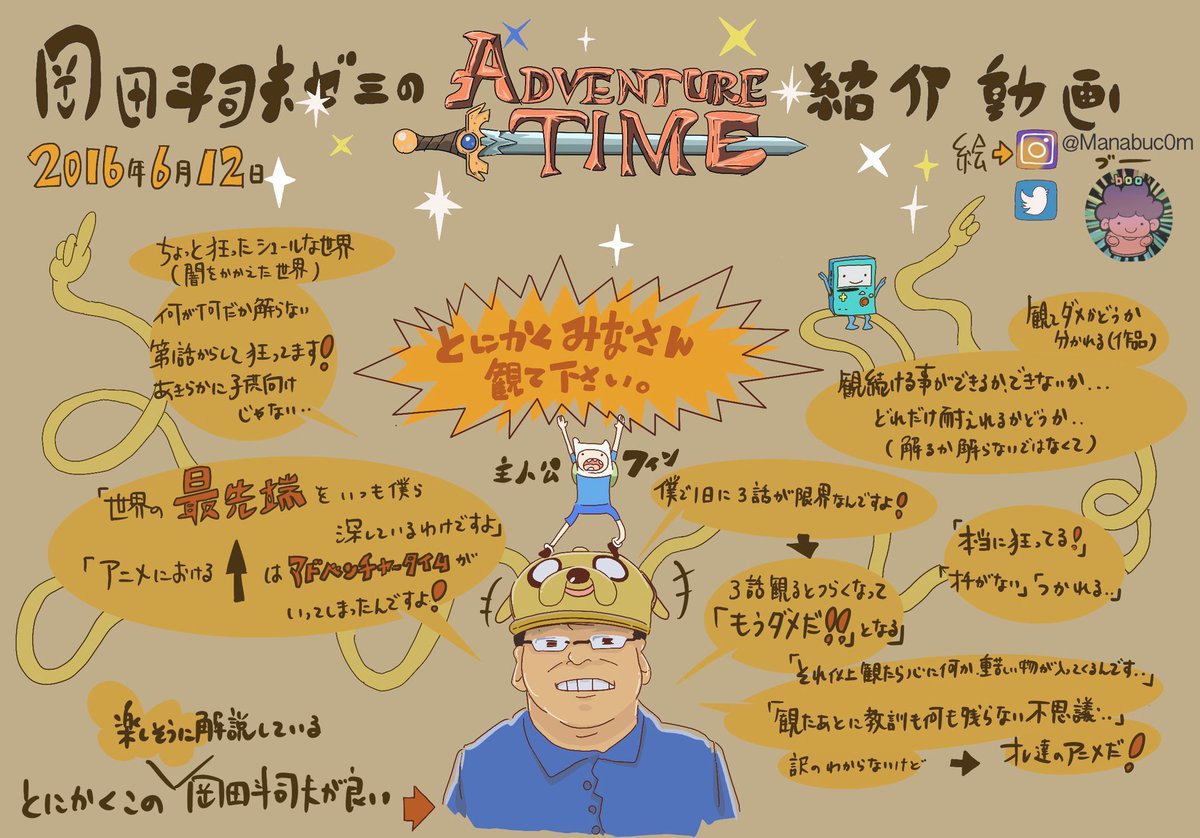 岡田斗司夫ゼミの ADVENTURE TIME 紹介動画
2016年6月12日
絵→ @Manabuc0m
ブー
boo
ちょっと狂ったシュールな世界
(闇をかかえた世界)
何が何だか解らない
第1話からして狂ってます!
あきらかに子供向け
じゃない..
とにかくみなさん
観て下さい。
観てダメかどうか
分かれる(作品)
観続ける事ができるか、できないか...
どれだけ耐えれるかどうか..
(解るか解らないではなくて)
主人公 フィン
「世界の最先端をいつも僕ら
深しているわけですよ」
「アニメにおける↑はアドベンチャータイムが
いってしまったんですよ!」
僕で1日に3話が限界なんですよ!
3話観るとつらくなって
「もうダメだ!!」となる」
「本当に狂ってる!」
「オチがない」つかれる..」
「それ以上観たら心に何か、重苦しい物が入ってくるんです..」
「観たあとに教訓も何も残らない不思議..」
訳のわからないけど → オレ達のアニメだ!
楽しそうに解説している
とにかくこの岡田斗司夫が良い→